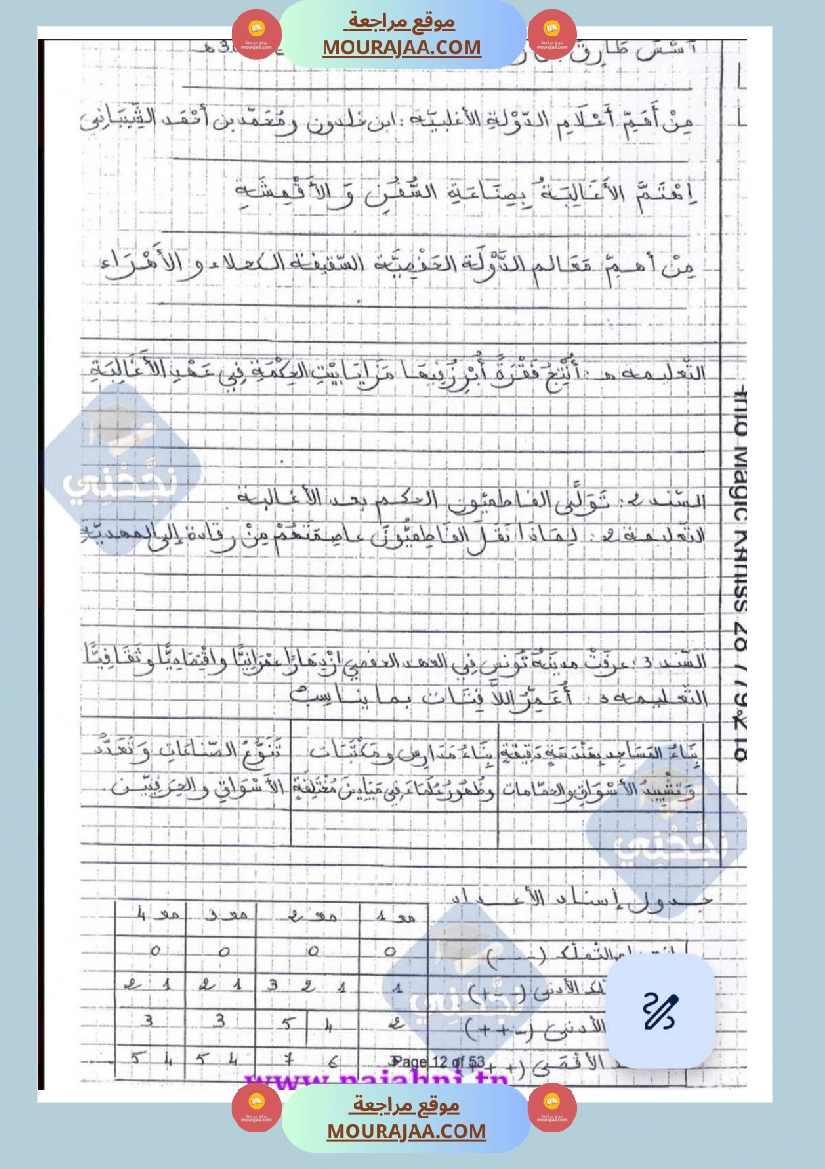 موقع مراجعة
MOURAJAA.COM
أسّسَ طَارِق بن
مِنْ أَهَمِّ أَعْلَامِ الدَّوْلَةِ الأَغْلَبِيَّة : ابن خلدون و مُحَمَّد بن أحْمَد الشَّيْبَانِي
اِهْتَمَّ الأَغَالِبَةُ بِصِنَاعَةِ السُّفُنِ وَ الأَقْمِشَةِ
مِنْ أهمِّ مَعَالم الدَّوْلَة الحَفْصِيَّة السّقيفة الكحلاء و الأَهْرَاء
التّعليمة : أُنْتِجُ فَقْرَةً أُبْرِزُ فِيهَا مَزَايَا بَيْتِ الحِكْمَةِ فِي عَهْدِ الأَغَالِبَةِ
السّند 2 : تَوَلَّى الفاطميّون الحكم بعد الأغالبة
التّعليمة 2 : لِمَاذَا نَقَلَ الفَاطِمِيُّونَ عاصِمَتَهُمْ مِنْ رقادة إلى المهديّة
السّند 3 : عرفَتْ مدينَةُ تُونس فِي العهد الحفصي ازْدِهَارًا عمْرَانِيًّا واقْتِصَادِيًّا وثَقَافِيًّا
التعليمة 3 : أُعَمِّرُ اللاَّفِتَات بما يناسبُ
بِنَاءُ المَسَاجِد بهَنْدَسَةٍ دَقِيقَةٍ
وَتَشْيِيدُ الأسْوَاق والحمّامات
بِنَاءُ مَدَارِسَ ومَكْتَبَات
وظُهُورُ عُلَمَاءَ فِي مَيَادِينَ مُخْتَلِفَةٍ
تَنَوُّعُ الصّنَاعَاتِ وَتَعَدُّدُ
الأَسْوَاقِ والحِرَفِيّين.
جدول إسناد الأعداد
مع 1 مع 2 مع 3 مع 4
التّملّك (---) 0 0 0 0
الأدنى (+--) 1 1 2 3 1 2 1 2
الأدنى (++-) 2 4 5 3 3
الأقصى (+++) 3 6 7 4 5 4 5
Page 12 of 53
www.najahni.tn
نجّحني
نجّحني
نجّحني
Info Magic Kahiss 28 779 218
موقع مراجعة
MOURAJAA.COM